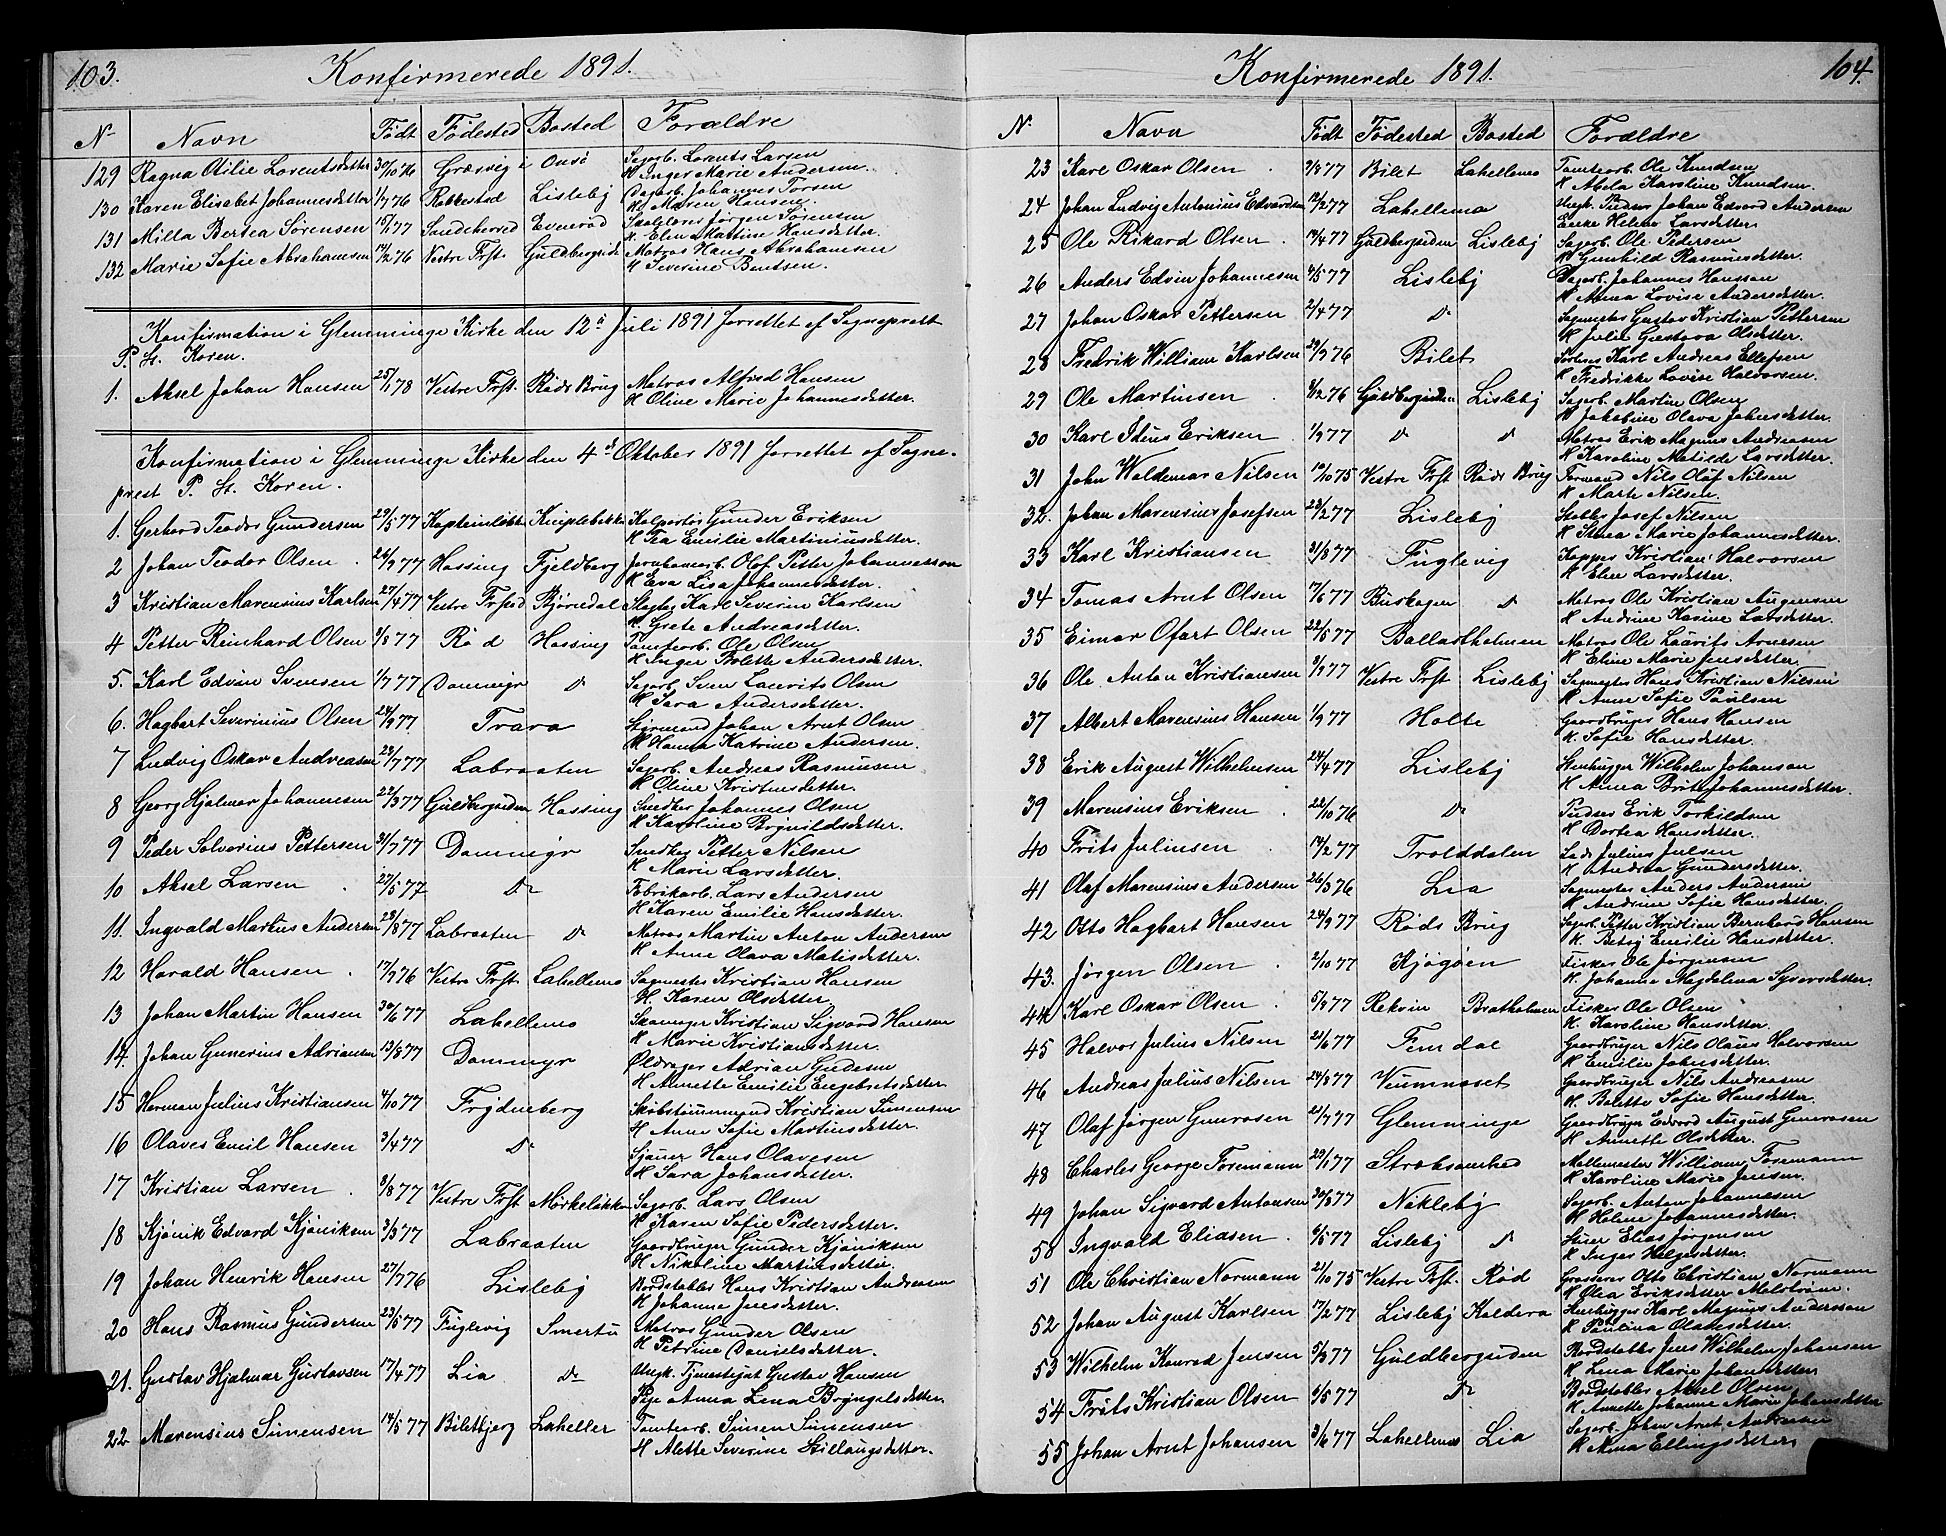 103.
Konfirmerede 1891.
No Navn Født Fødested Bosted Forældre
129 Ragna Otilie Lorentsdatter 30/10 76 Græsvig i Onsö Sagarb. Lorents Larsen
H Inger Marie Andersen.
130 Karen Elisabet Johannesdatter 1/7 76 Rakkestad Lisleby Dagarb. Johannes Torsen
H. Maren Hansen.
131 Milla Bertea Sörensen 15/1 77 Evenröd Jörgen Sörensen
H. Elen Martine Hansdatter.
132 Marie Sofie Abrahamsen 14/2 76 Vestre Frst. Guldbergsid. Matros Hans Abrahamsen
H Severine Bentsen.
Konfirmation i Glemminge Kirke den 12te Juli 1891 forrettet af Sogneprest
P. H. Koren.
1. Aksel Johan Hansen 25/1 78 Vestre Frst. Röds Brug Matros Alfred Hansen
H Oline Marie Johannesdatter.
Konfirmation i Glemminge Kirke den 4de Oktober 1891 forrettet af Sogne-
prest P. H. Koren.
1. Gerhard Teodor Gundersen 29/5 77 Kaptein Kolportör Gunder Eriksen
H Tea Emilie Martiniusdatter.
2 Johan Teodor Olsen 26/9 77 Hassing Fjeldberg Jernbanearb. Olof Petter Johannesson
H Eva Lisa Johannesdatter.
3 Kristian Marensius Karlsen 27/4 77 Vestre Frstad Björnedal Karl Severin Karlsen
H. Grete Andreasdatter.
4 Petter Reinhard Olsen 4/8 77 Röd Hassing Tomtearb. Ole Olsen
H Inger Bolette Andersdatter.
5. Karl Edvin Svensen 1/7 77 Dammyr do Sagarb. Sven Laurits Olsen
H Sara Andersdatter.
6. Hagbart Severinius Olsen 24/9 77 Trara Styrmand Johan Arnt Olsen
H Hanna Katrine Andersen.
7 Ludvig Oskar Andreasen 23/7 77 Labraaten Sagarb. Andreas Rasmussen
H Oline Kristinsdatter.
8 Georg Hjalmar Johannesen 22/3 77 Guldbergsiden Hassing Snedker Johannes Olsen
H Karoline Brynildsdatter.
9 Peder Solverius Pettersen 31/7 77 Dammyr Snedker Petter Nilsen
H Marie Larsdatter.
10 Aksel Larsen 27/5 77 do Fabrikarb. Lars Andersen
H Karen Emilie Hansdatter.
11. Ingvald Martius Andersen 28/8 77 Labraaten do Matros Martin Anton Andersen
H Anne Olava Matisdatter.
12 Harald Hansen 17/9 76 Vestre Frst. Lahellemo Sagmester Kristian Hansen
H. Karen Olsdatter
13 Johan Martin Hansen 30/6 77 Lahellemo Skomager Kristian Sigvard Hansen
H Marie Kristiansdatter.
14. Johan Gunerius Adriansen 13/8 77 Dammyr Öldrager Adrian Gudesen
H Annette Emilie Engebretsdatter
15 Herman Julius Kristiansen 4/10 77 Frydenberg Skibstömmermand Kristian Simensen
H Anne Sofie Martinsdatter.
16 Olaves Emil Hansen 3/4 77 do Sjauer Hans Olavesen
H Sara Johansdatter.
17 Kristian Larsen 8/8 77 Vestre Frst Mörkelökken Sagarb. Lars Olsen
H Karen Sofie Pedersdatter.
18 Kjönik Edvard Kjöniksen 3/3 77 Labraaten Gaardbruger Gunder Kjöniksen
H Nikoline Martinsdatter.
19 Johan Henrik Hansen 27/7 76 Lisleby Bordstabler Hans Kristian Andreasen
H Johanne Jensdatter.
20 Hans Rasmus Gundersen 23/5 77 Fuglevig Smertu Matros Gunder Olsen
H Petrine Danielsdatter.
21. Gustav Hjalmar Gustavsen 17/4 77 Lia do Ungk. Gustav Hansen
Pige Anna Lena Bryngelsdatter.
22 Marensius Simensen 14/5 77 Biletbjerg Laheller Tomtearb. Simen Simensen
H Alette Severine Skillaugsdatter.
104.
Konfirmerede 1891.
No Navn Født Fødested Bosted Forældre
23 Karl Oskar Olsen 9/8 77 Bilet Lahellemo Tomtearb. Ole Knudsen
H Abela Karoline Knudsen.
24 Johan Ludvig Antonius Edvardsen 12/2 77 Lahellemo Johan Edvard Andersen
Enke Helene Larsdatter
25 Ole Rikard Olsen 14/4 77 Guldbergsiden Lisleby Sagarb. Ole Pedersen
H Gunhild Rasmusdatter.
26 Anders Edvin Johannesen 4/5 77 Lisleby Dagarb. Johannes Hansson
H Anna Lovise Andersdatter.
27 Johan Oskar Pettersen 2/4 77 do Sagmester Gustav Kristian Pettersen
H Julie Gustava Olsdatter.
28 Fredrik William Karlsen 29/9 76 Bilet Karl Andreas Ellefsen
H Fredrikke Lovise Halvorsen.
29 Ole Martinsen 8/12 76 Guldbergsiden Lisleby Sagarb. Martin Olsen
H Jakobine Olava Johnsdatter.
30 Karl Eriksen 1/9 77 do do Matros Erik Magnus Andreasen
H Karoline Matilde Larsdatter.
31 John Waldemar Nilsen 12/10 75 Vestre Frst Röds Brug Formand Nils Olaf Nilsen
H Marte Nilsen.
32. Johan Marensius Josefsen 23/2 77 Lisleby Stabler Josef Nilsen
H Stina Marie Johannesdatter.
33 Karl Kristiansen 31/8 77 Fuglevig Kapper Kristian Halvorsen
H Elen Larsdatter.
34 Tomas Arnt Olsen 17/6 77 Buskogen do Matros Ole Kristian Augensen
H Andrine Kasine Larsdatter.
35 Eimar Ofart Olsen 22/5 77 Ballastholmen Matros Ole Laurits Arnesen
H Eline Marie Jensdatter.
36 Ole Anton Kristiansen 3/9 77 Vestre Frst Lisleby Sagmester Hans Kristian Nilsen
H Anne Sofie Paulsen
37 Albert Marensius Hansen 1/9 77 Holte Gaardbruger Hans Hansen
H. Sofie Hansdatter.
38 Erik August Wilhelmsen 24/4 77 Lisleby Stenhugger Wilhelm Johanson
H Anna Brita Johannesdatter.
39 Marensius Eriksen 22/10 76 do Pudser Erik Torkildsen
H Dortea Hansdatter.
40 Frits Juliusen 14/2 77 Trolddalen Lods Julius Julsen
H Andrea Gundersdatter.
41 Olaf Marensius Andersen 26/3 76 Lia Sagmester Anders Andersen
H Andrine Sofie Hansdatter.
42 Otto Hagbart Hansen 24/9 77 Röds Brug Sagarb. Petter Kristian Bernhard Hansen
H. Betsy Emilie Hansdatter.
43. Jörgen Olsen 2/10 77 Kjögöen Fisker Ole Jörgensen
H. Johanne Magdalena Syversdatter.
44 Karl Oskar Olsen 5/9 77 Rekvin Bratholmen Fisker Ole Olsen
H. Karoline Hansdatter.
45 Halvor Julius Nilsen 21/6 77 Femdal Gaardbruger Nils Olaus Halvorsen
H Emilie Johnsdatter.
46 Andreas Julius Nilsen 24/8 77 Veumnesset Gaardbruger Nils Andreasen
H. Bolette Sofie Hansdatter.
47 Olaf Jörgen Gunrosen 21/7 77 Glemminge Gaardbruger Edvard August Gunrosen
H Annette Olsdatter.
48 Charles George Foremann 29/1 77 Straksomhed Möllemester William Foremann
H Karoline Marie Jensen.
49 Johan Sigvard Antonsen 30/8 77 Nikleby Sagarb. Anton Johannesen
H Helene Johannesdatter.
50 Ingvald Eliasen 6/5 77 Lisleby do Elias Jörgensen
H Inger Helgesdatter.
51 Ole Christian Normann 21/10 75 Vestre Frst. Röd Grosserer Otto Christian Normann
H Olea Eriksdatter Malström.
52 Johan August Karlsen 17/2 77 Lisleby Kaldera Stenhugger Karl Magnus Anderson
H Paulina Olavesdatter.
53 Wilhelm Konrad Jensen 9/3 77 Guldbergsiden Bordstabler Jens Wilhelm Johansen
H. Lena Marie Johansdatter
54 Frits Kristian Olsen 5/5 77 do Bordstabler Aksel Olsen
H Annette Johanne Marie Johansdatter
55 Johan Arnt Johansen 3/6 77 Lahellemo Lia Sagarb. Johan Arnt Andersen
H Anna Ellingsdatter